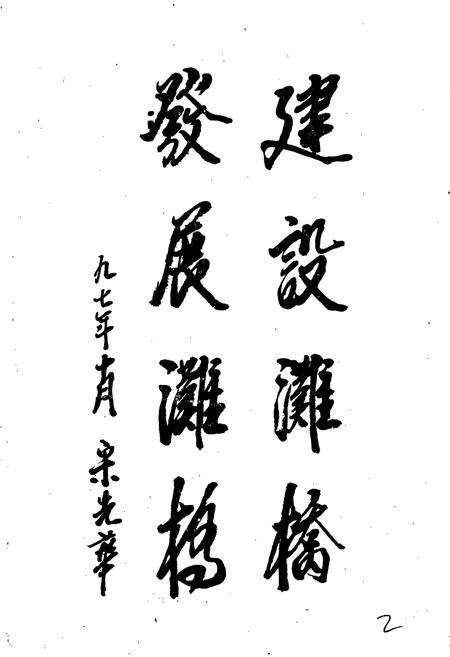 建設灘橋
發展灘橋
九七年十月 栗先華
2